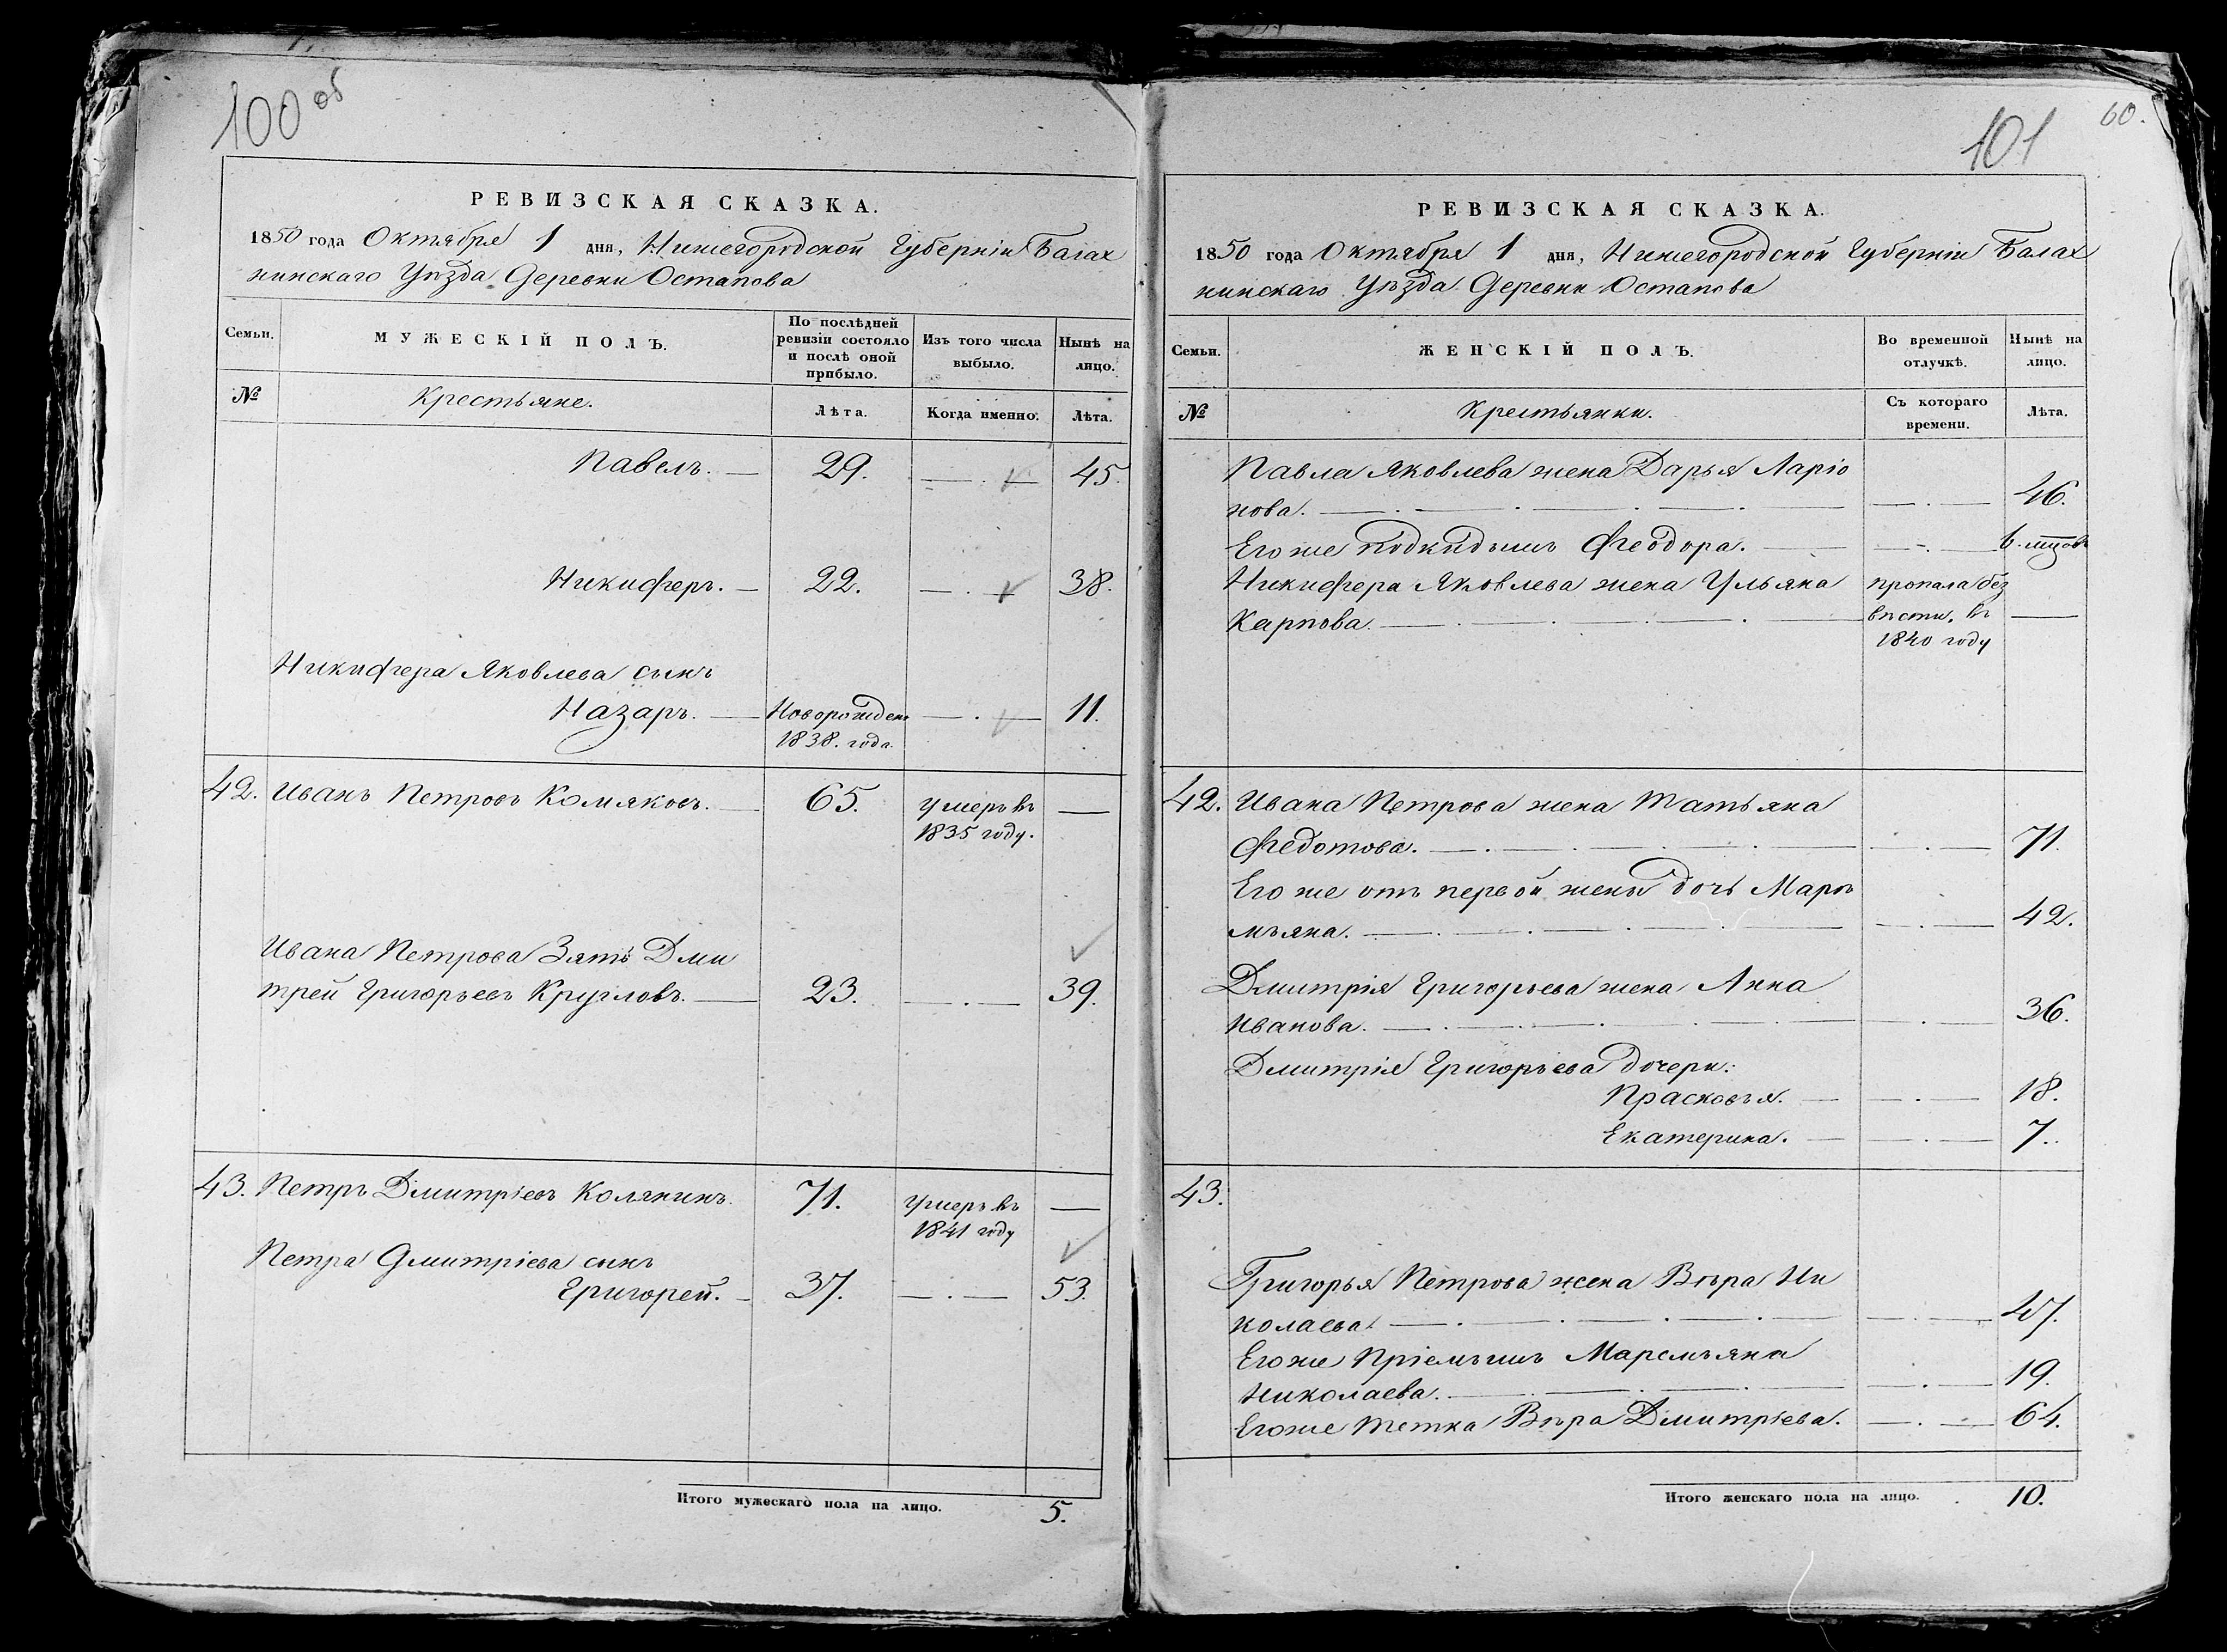 100 об
РЕВИЗСКАЯ СКАЗКА.
1850 года Октября 1 дня, Нижегородской Губерніи Балах
нинскаго Уѣзда Деревни Остапова
Семьи.
МУЖЕСКІЙ ПОЛЪ.
По послѣдней
ревизіи состояло
и послѣ оной
прибыло.
Изъ того числа
выбыло.
Нынѣ на
лицо.
№
Крестьяне.
Лѣта.
Когда именно.
Лѣта.
Павелъ. 29. 45.
Никифоръ. 22. 38.
Никифера Яковлева сынъ
Назаръ. Новорожден 11.
1838. года.
42. Иванъ Петровъ Комяковъ. 65. умеръ въ
1835 году.
Ивана Петрова Зять Дми
трей Григорьевъ Кругловъ. 23. 39.
43. Петръ Дмитріевъ Колянинъ. 71. умеръ въ
1841 году
Петра Дмитріева сынъ
Григорей. 37. 53.
Итого мужескаго пола на лицо. 5.
101
60.
РЕВИЗСКАЯ СКАЗКА.
1850 года Октября 1 дня, Нижегородской Губерніи Балах
нинскаго Уѣзда Деревни Остапова
Семьи.
ЖЕНСКІЙ ПОЛЪ.
Во временной
отлучкѣ.
Нынѣ на
лицо.
№
Крестьянки.
Съ котораго
времени.
Лѣта.
Павла Яковлева жена Дарья Ларіо
нова. 46.
Его же подкидышъ Феодора. 6. мцовъ
Никифера Яковлева жена Ульяна пропала без
Карпова. вѣсти, въ
1840 году
42. Ивана Петрова жена Татьяна
Федотова. 71.
Его же отъ первой жены дочь Маре
мьяна. 42.
Дмитрія Григорьева жена Анна
Иванова. 36.
Дмитрія Григорьева дочери:
Прасковья. 18.
Екатерина. 7.
43.
Григорья Петрова жена Вѣра Ни
колаева. 47.
Его же Пріемышъ Маремьяна
Николаева. 19.
Его же Тетка Вѣра Дмитріева. 64.
Итого женскаго пола на лицо. 10.